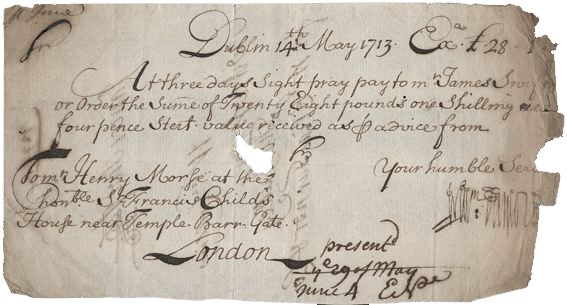 Sr
Dublin 14th May 1713. Exa £ 28 - 1
At three days Sight pray pay to mr James
or Order the Sume of Twenty Eight pounds one Shilling and
four pence Sterl. value received as ꝑ advice from
Sr
Your humble Ser
To mr Henry Morse at the
honble Sr Francis Child's
House near Temple-Barr-Gate.
London
presentd
ye 29 of May
June 4